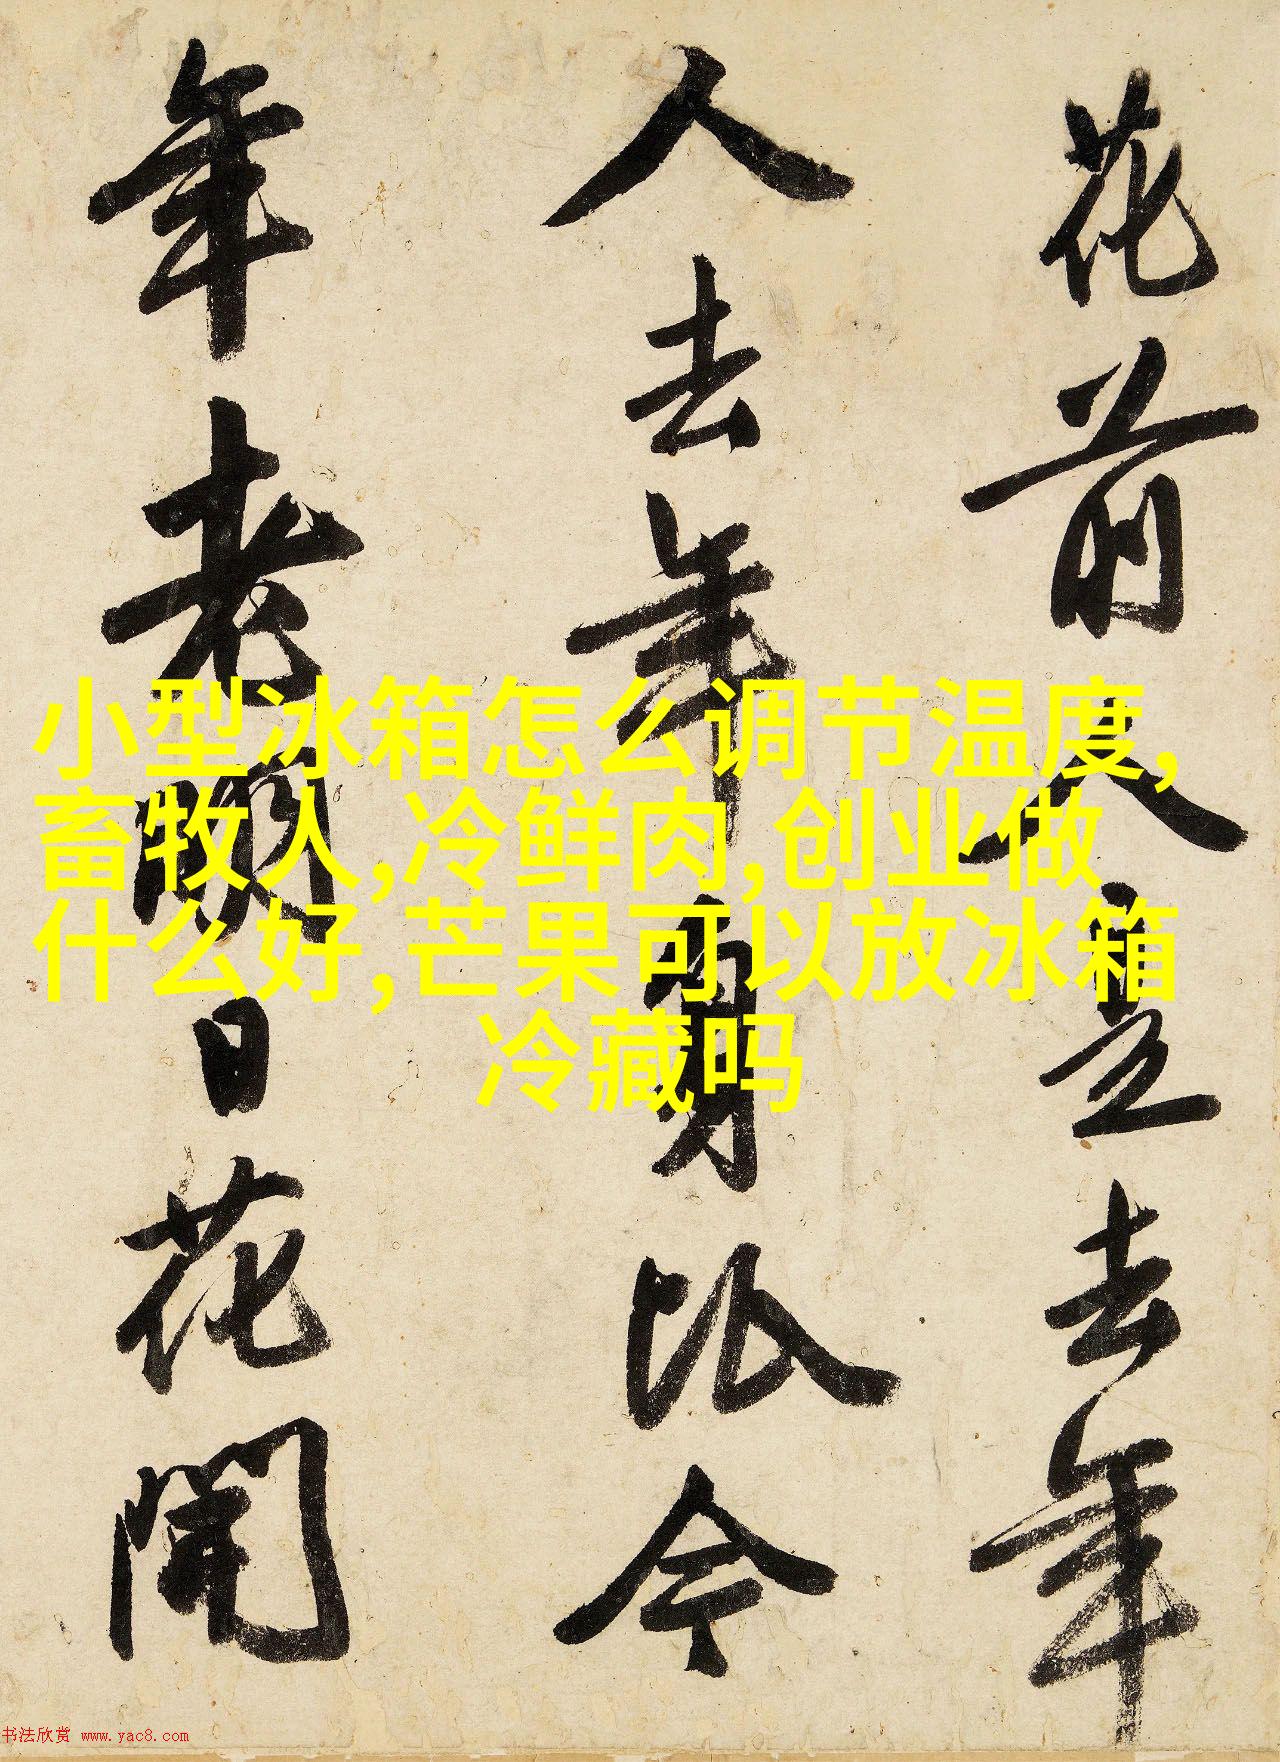 花前人是去年
人去年身比今
年老明日花開
小型冰箱怎么调节温度,
畜牧人,冷鲜肉,创业做
什么好,芒果可以放冰箱
冷藏吗
书法欣赏 www.yac8.com